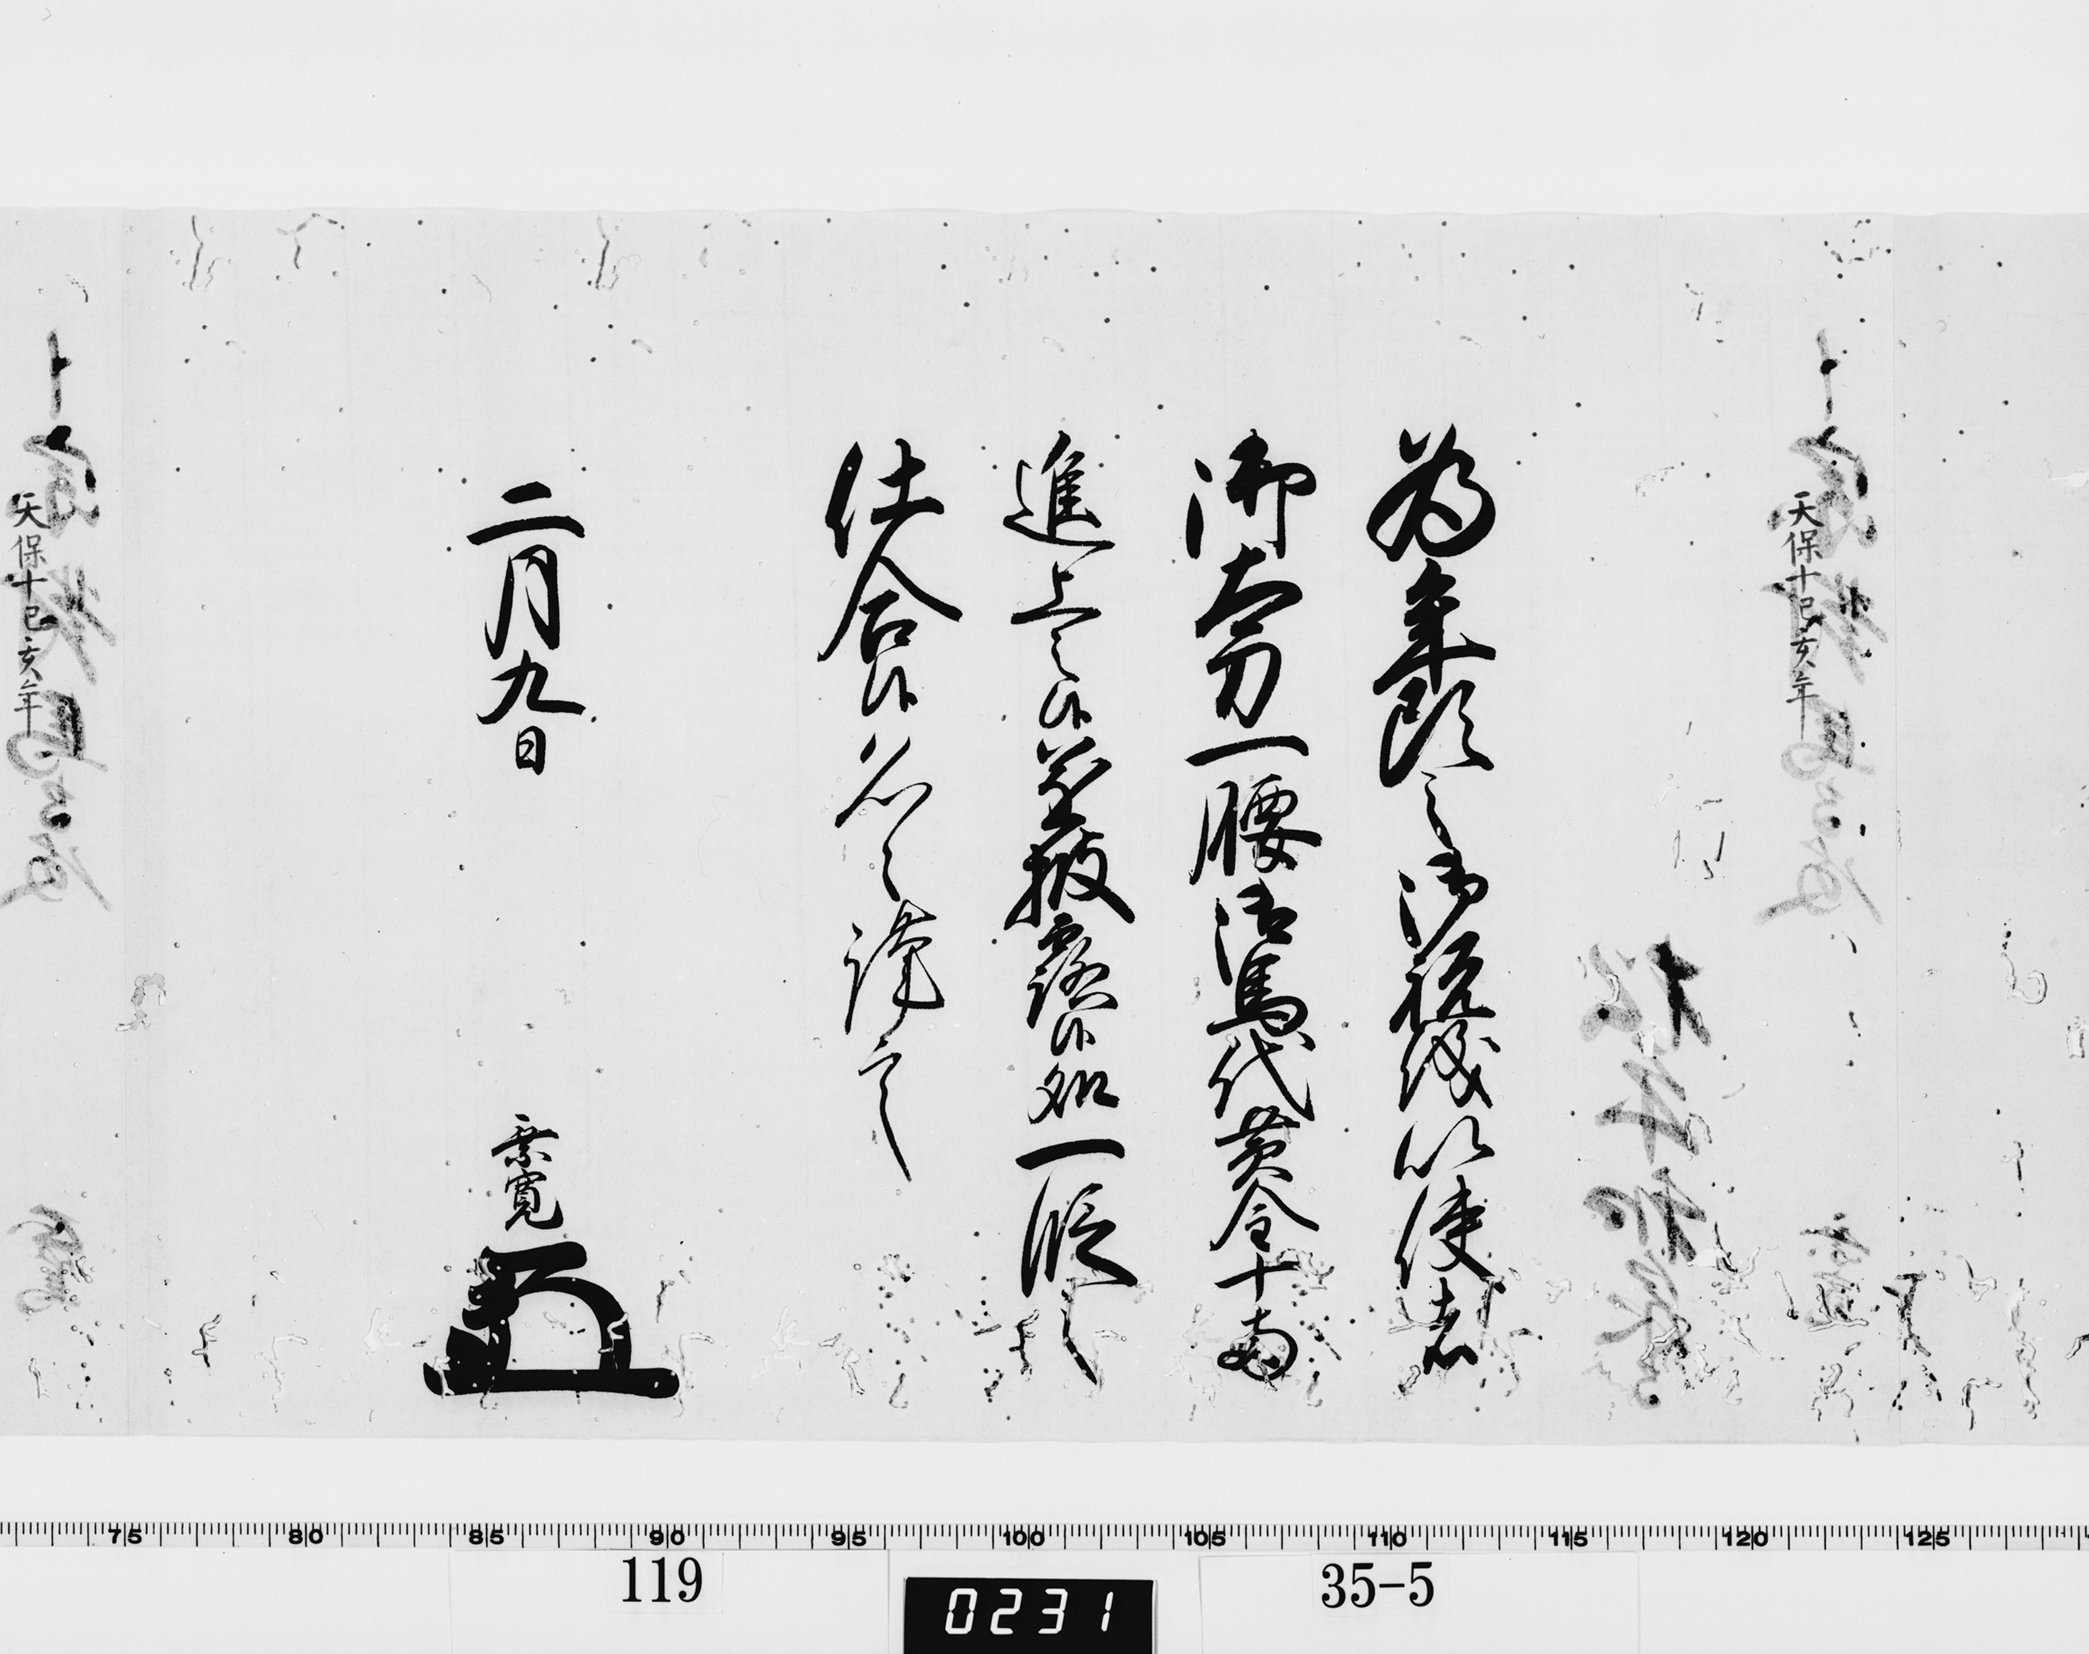 天保十己亥年
為年頭之御祝儀以使者
御太刀一腰御馬代黄金十両
進上之候遂披露候処一段之
仕合候恐々謹言
二月九日
乗寛
天保十己亥年
75 80 85 90 95 100 105 110 115 120 125
119
0231
35-5